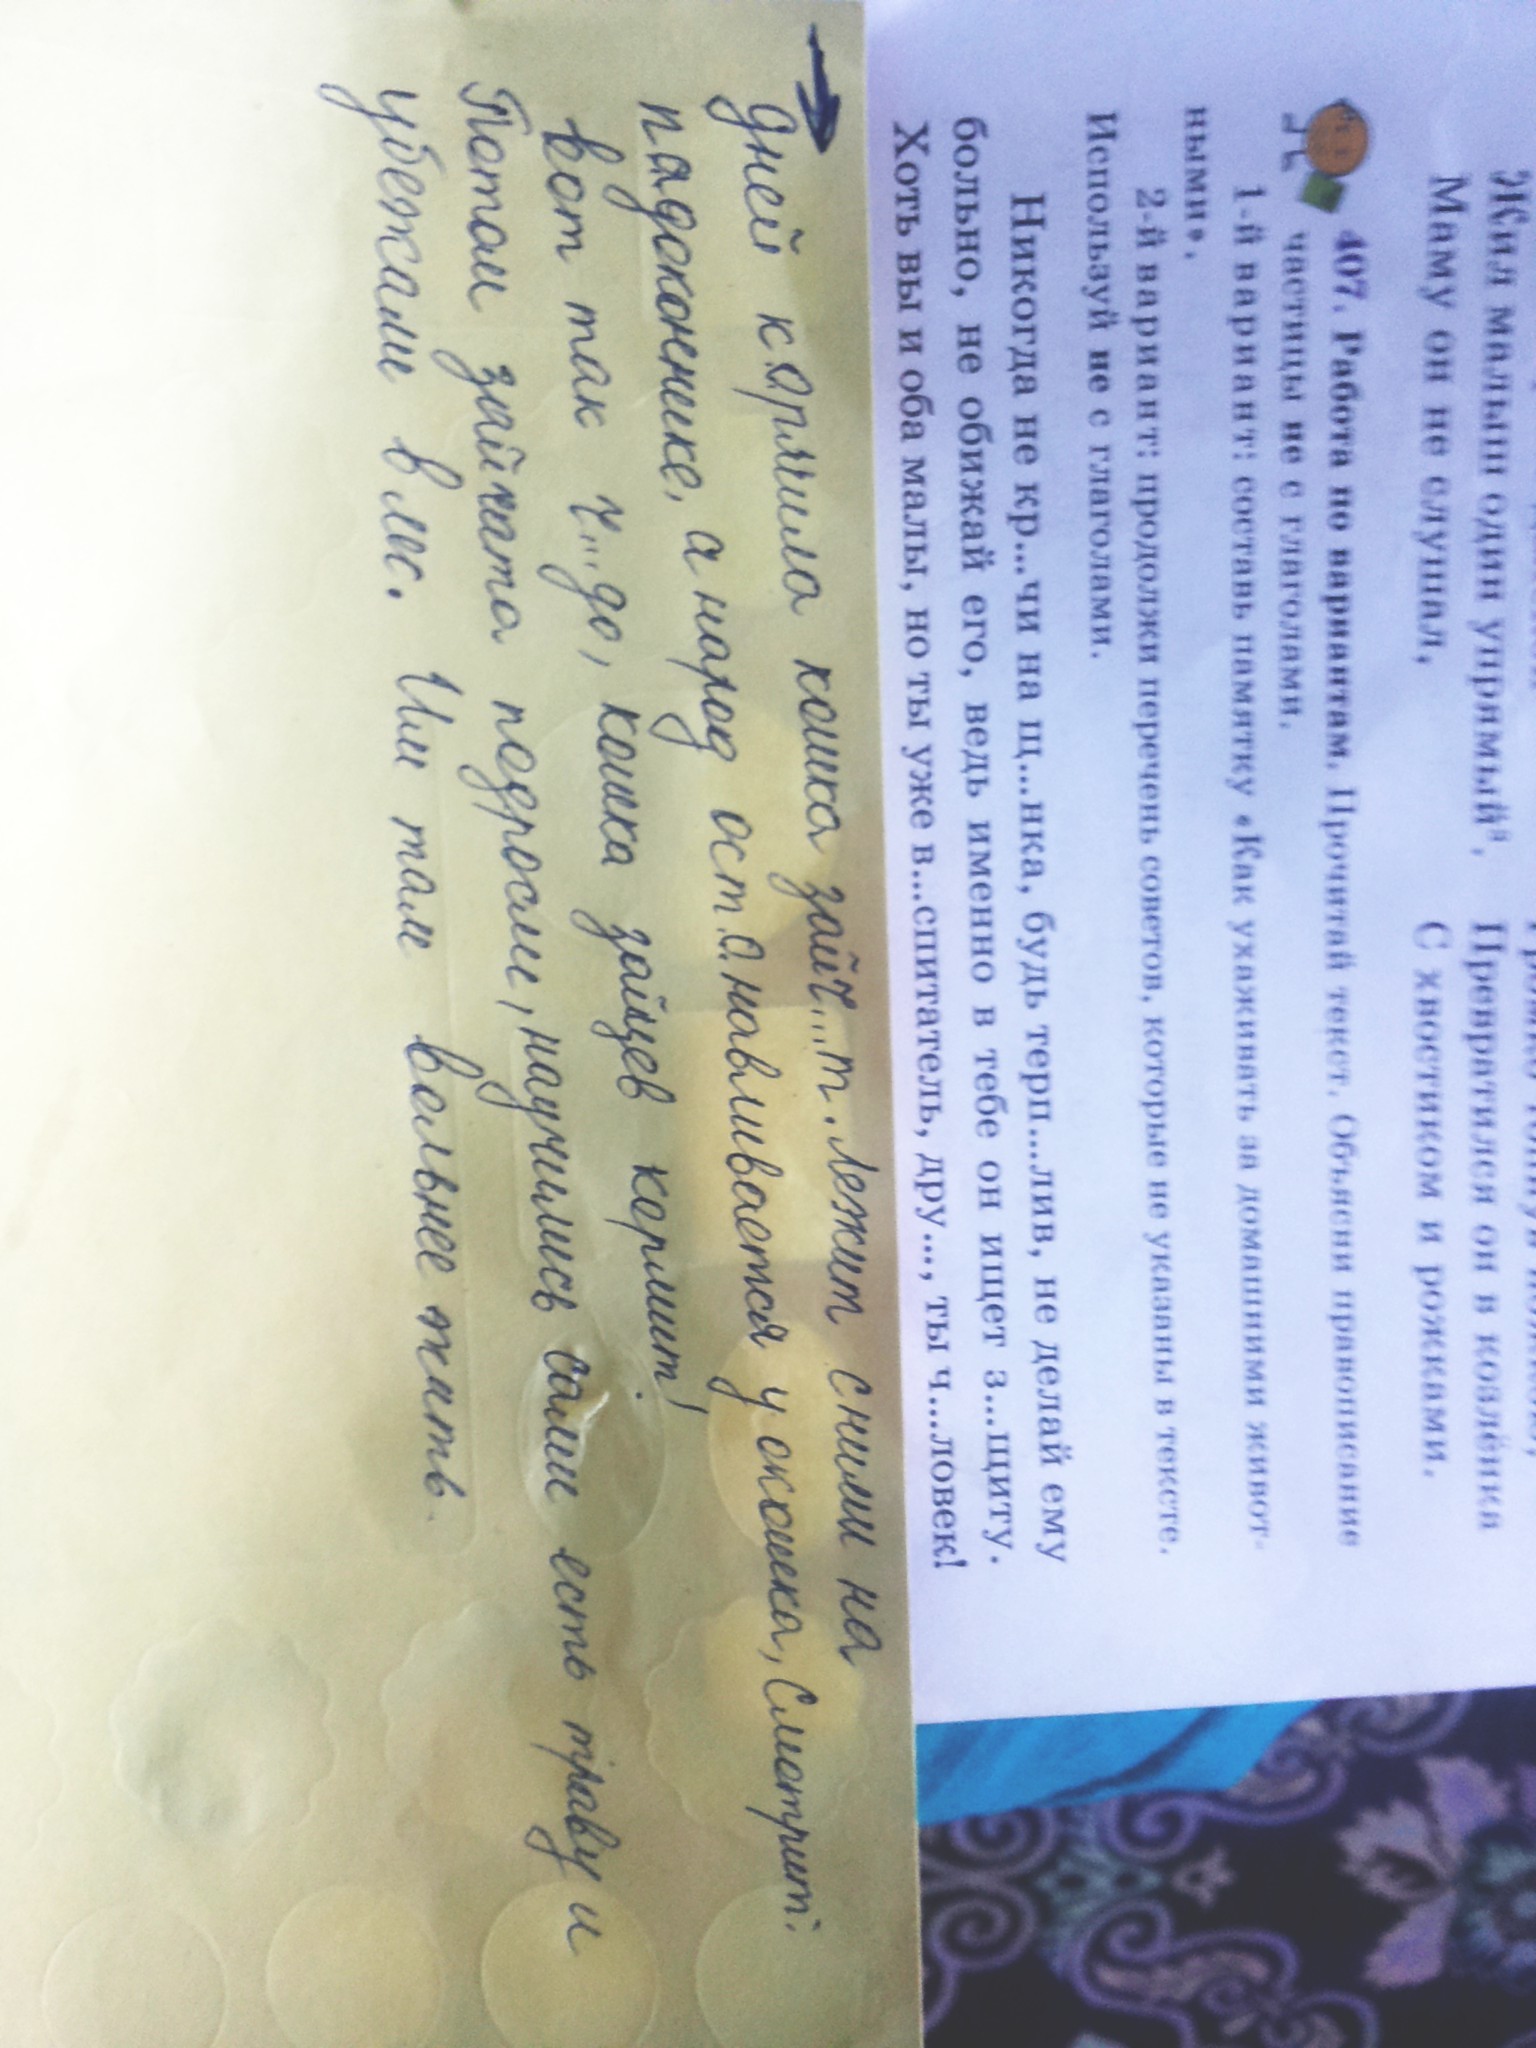 Жил малыш один упрямый
Превратился он в козлёнка
Маму он не слушал,
С хвостиком и рожками.
407. Работа по вариантам. Прочитай текст. Объясни правописание
частицы не с глаголами.
1-й вариант: составь памятку «Как ухаживать за домашними живот-
ными».
2-й вариант: продолжи перечень советов, которые не указаны в тексте.
Используй не с глаголами.
Никогда не кр...чи на щ...нка, будь терп...лив, не делай ему
больно, не обижай его, ведь именно в тебе он ищет з...щиту.
Хоть вы и оба малы, но ты уже в...спитатель, дру..., ты ч...ловек!
дней к.о.рмила кошка зайч...т. Лежит с ними на
падоконнике, а народ ост.а.навливается у окошка, Смотрит:
вот так ч...до, кошка зайцев кормит!
Потом зайчата подросли, научились сами есть траву и
убежали в лес. Им там вольнее жить.